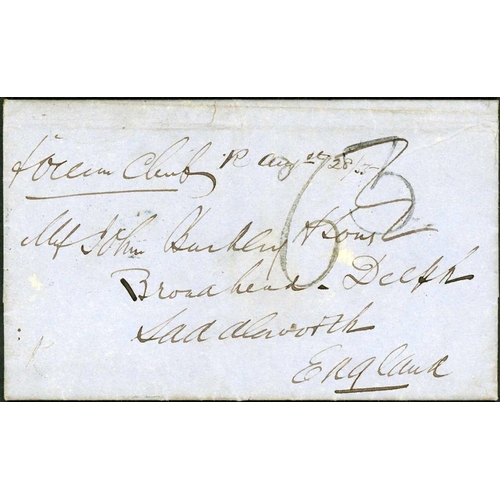 p Ocean Chief R Augt 28/57
6
3
Mr John Buckley & Sons
Broadhead - Delph
Saddleworth
England